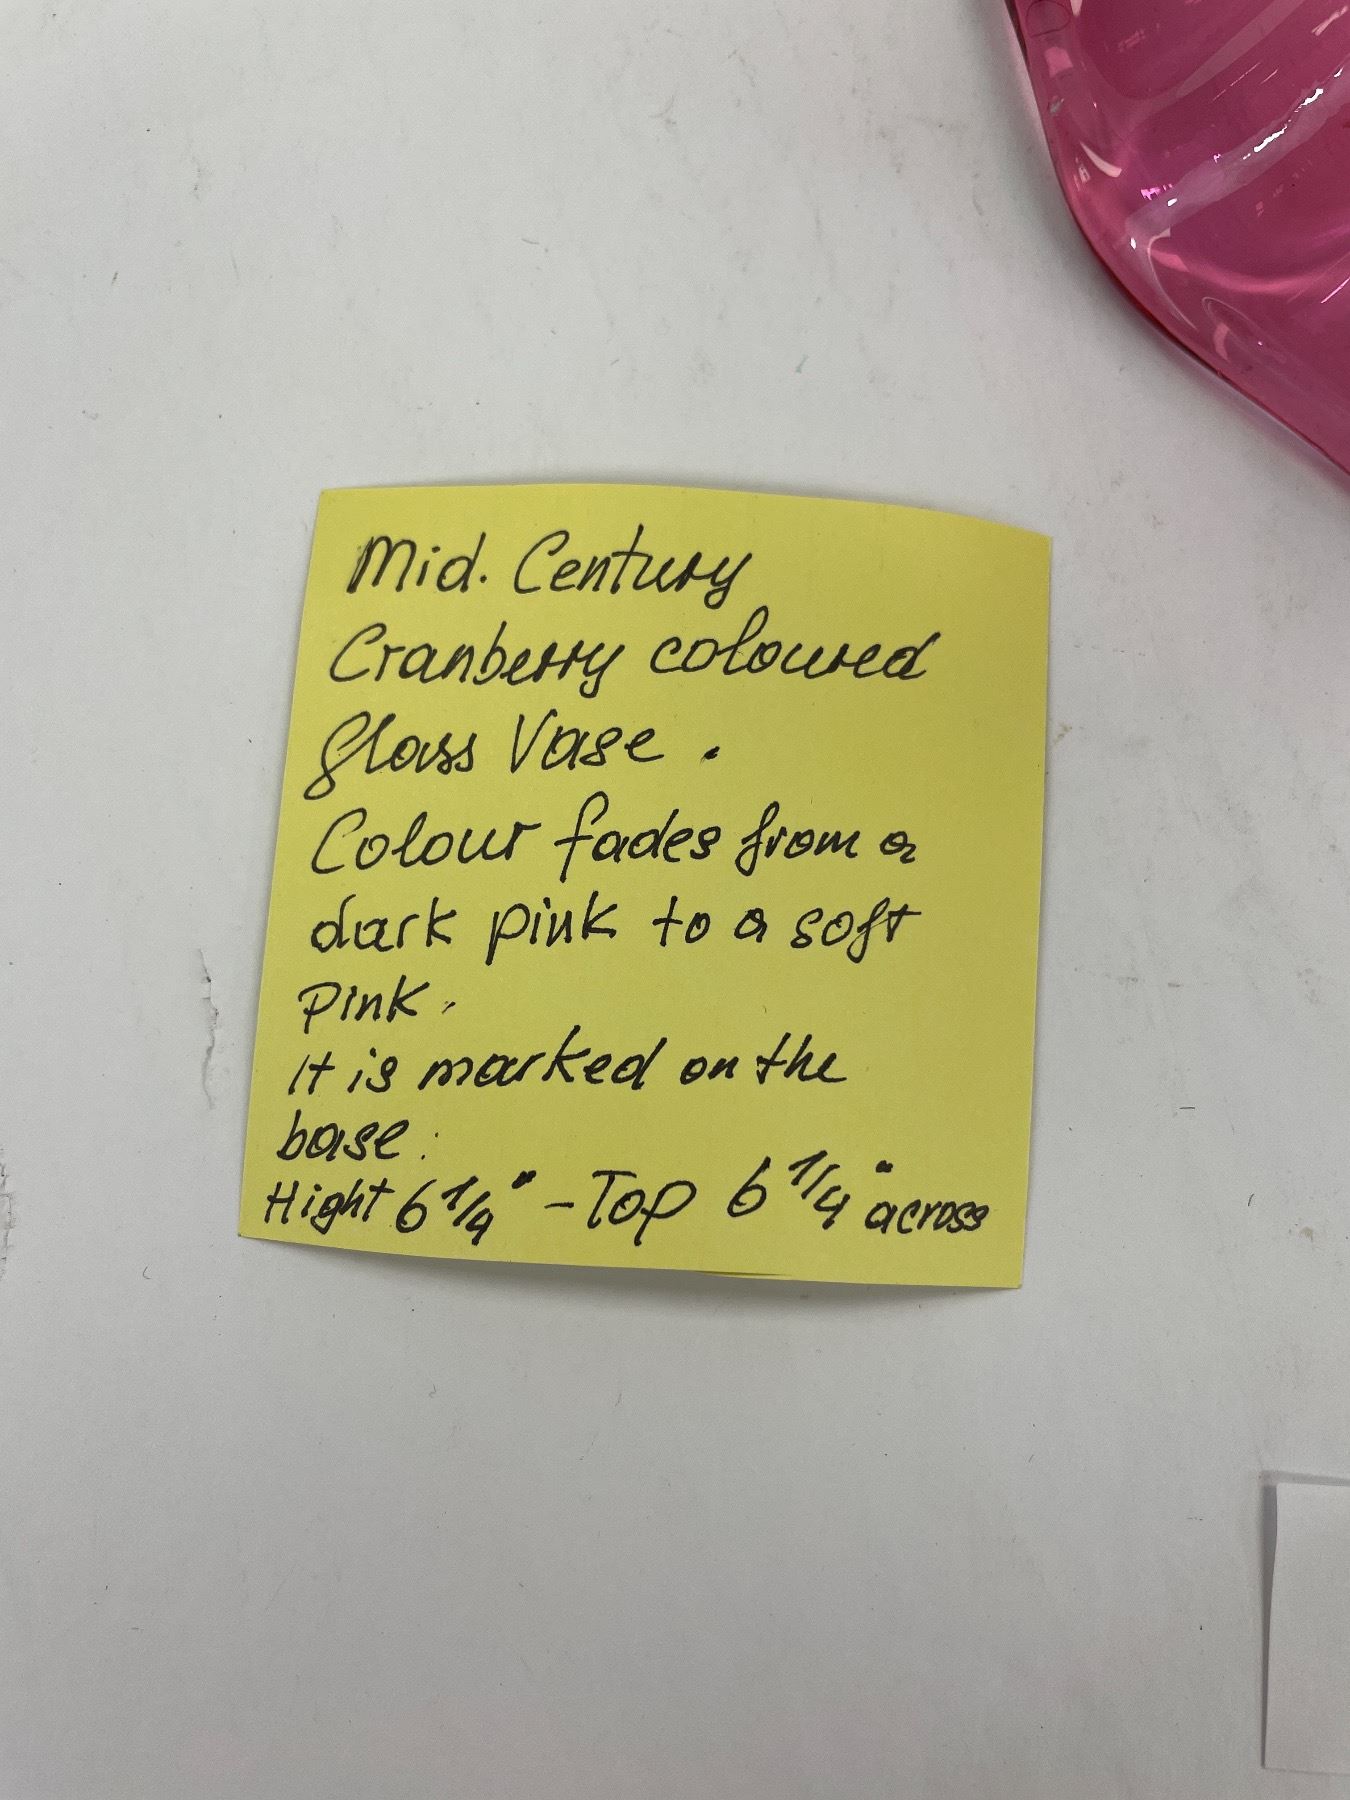 Mid. Century
Cranberry coloured
glass Vase .
Colour fades from a
dark pink to a soft
pink.
It is marked on the
base.
Hight 6 1/4" - Top 6 1/4" across